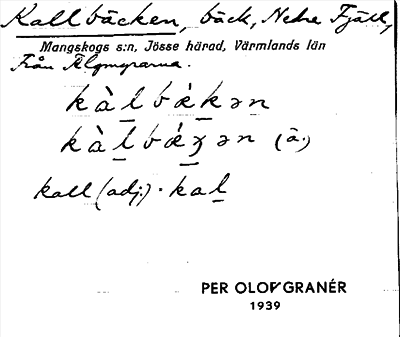 Kallbäcken, bäck, Nedre Fjäll,
Mangskogs s:n, Jösse härad, Värmlands län
Från Älgmyrarna.
kàlbǽkən
kàlbǽʒən (ä.)
kall (adj.) · kal
PER OLOF GRANÉR
1939